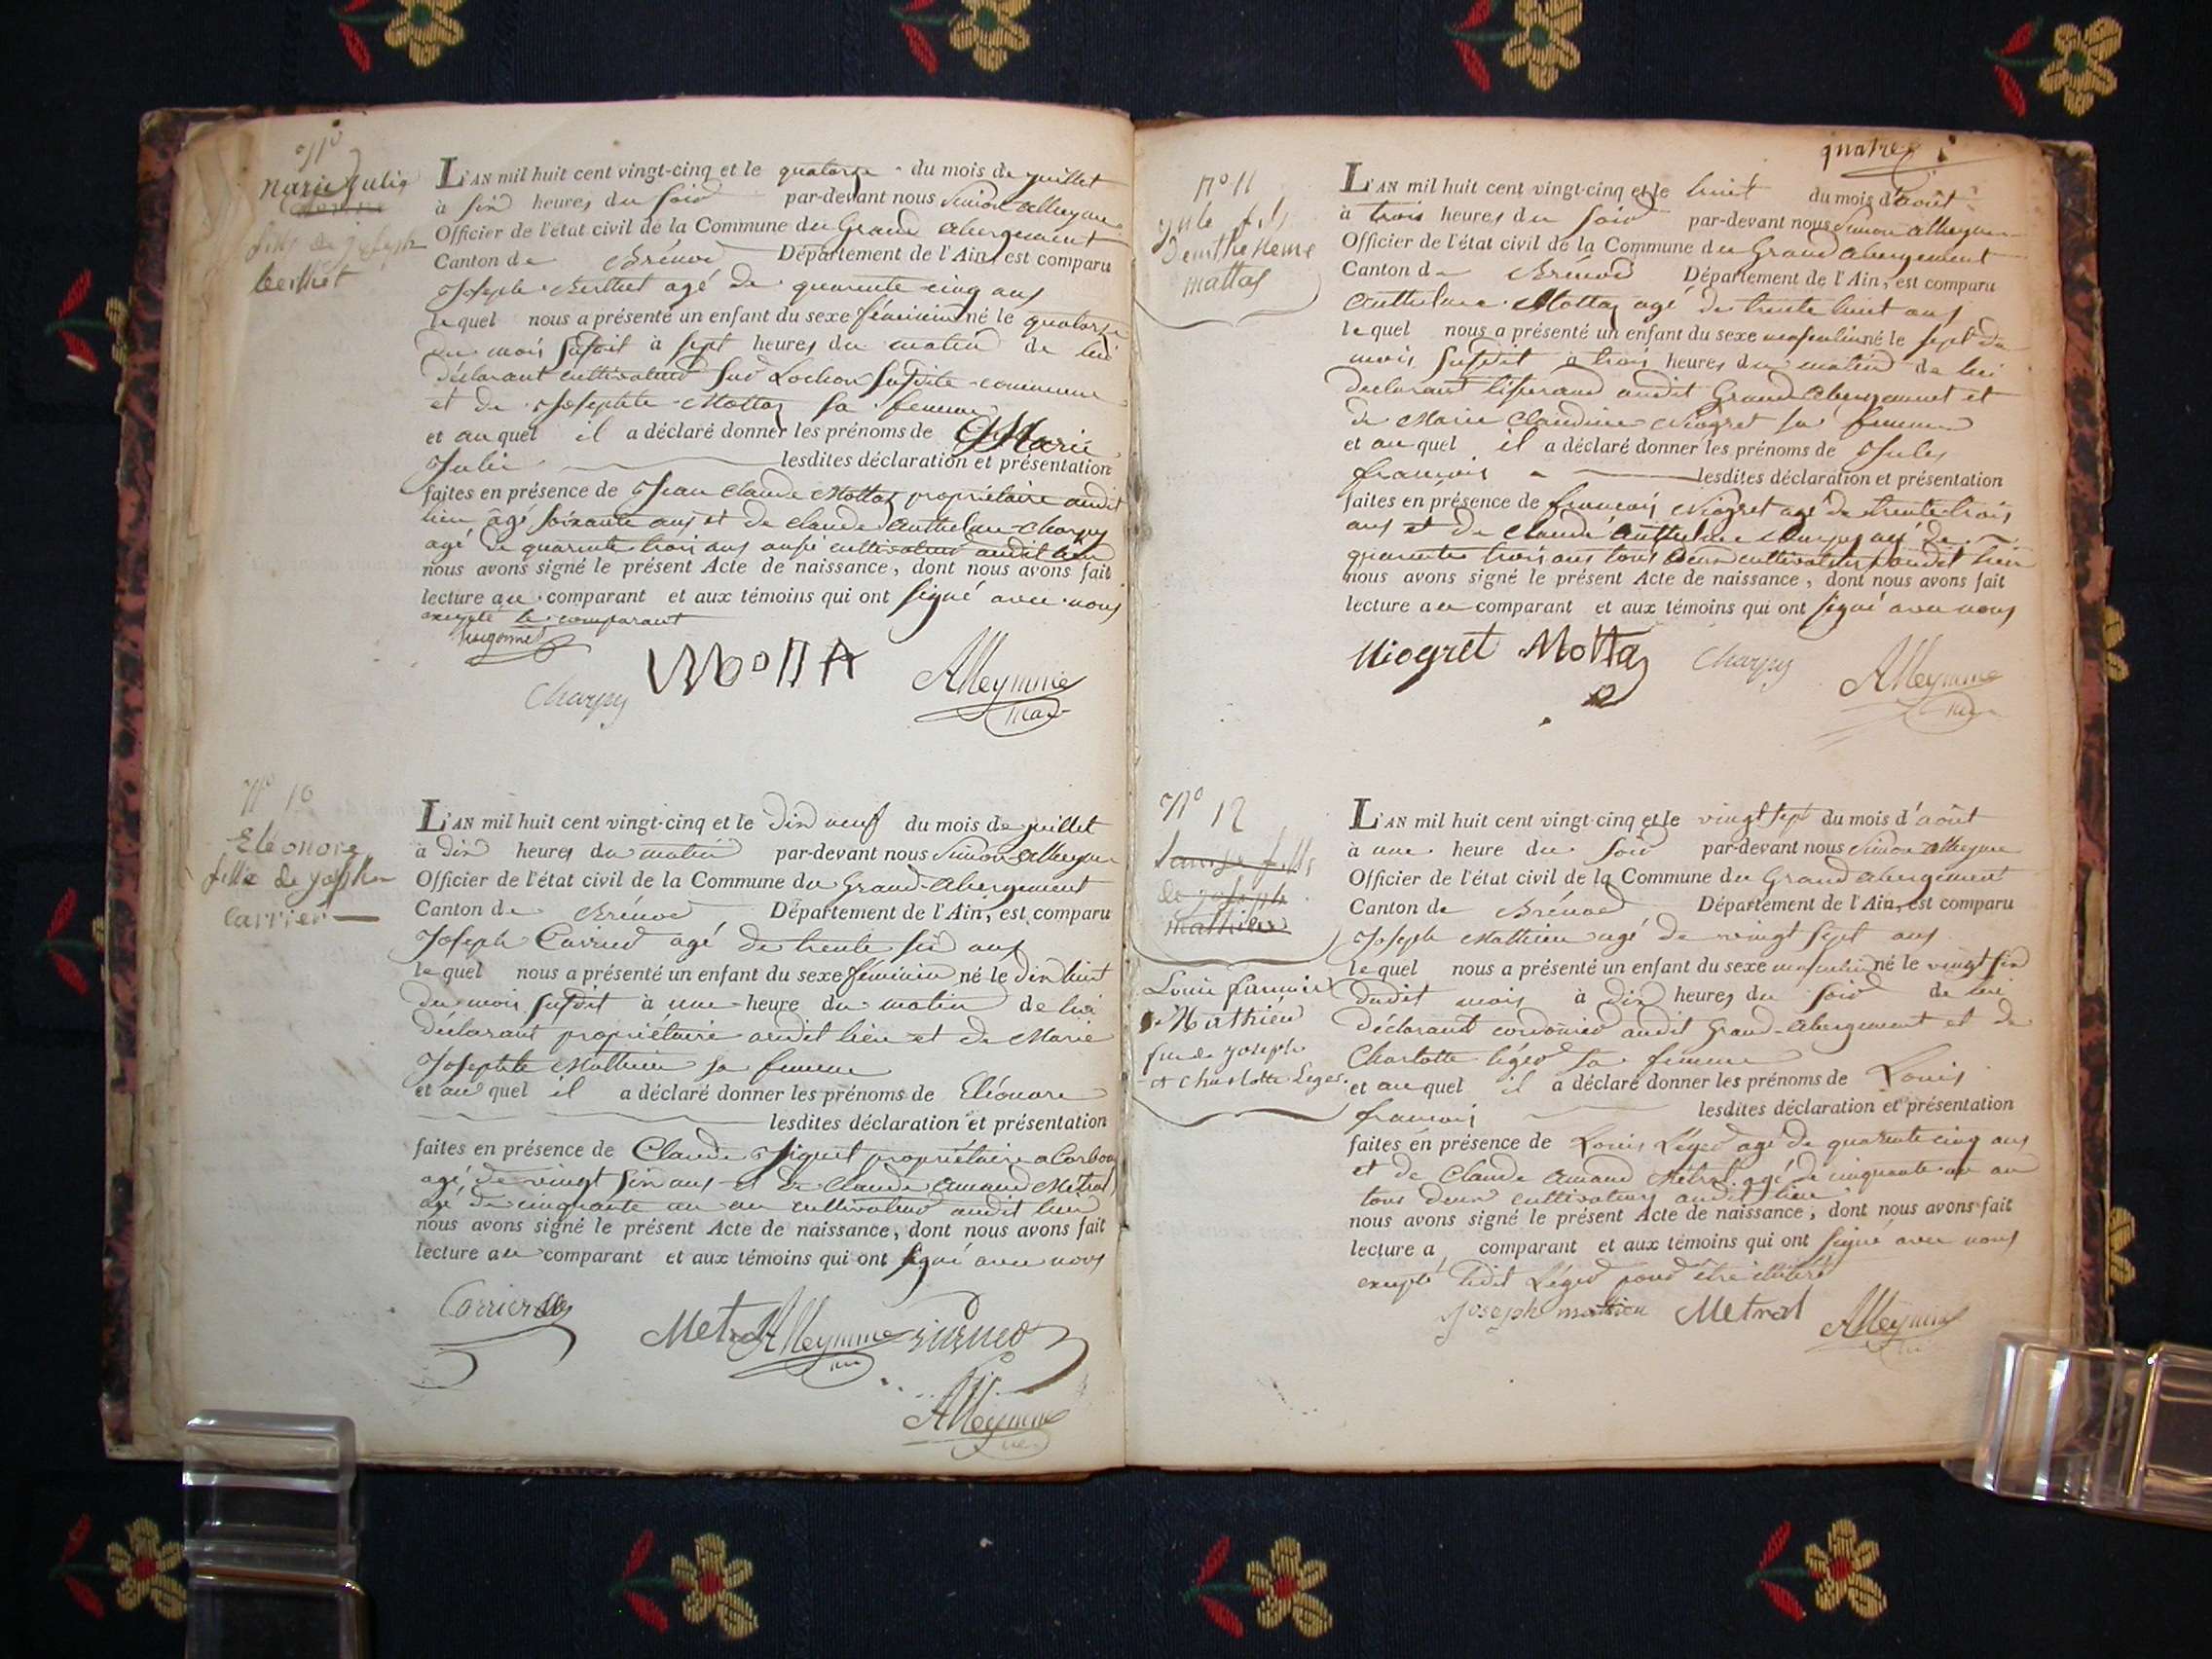 Nº
Marie Julie
fille de joseph
berthet
L'AN mil huit cent vingt-cinq et le quatorze du mois de juillet
à six heures du soir par-devant nous Simon Alleyme
Officier de l'état civil de la Commune du Grand abergement
Canton de Brénod Département de l'Ain, est comparu
Joseph Berthet agé de quarente cinq ans
lequel nous a présenté un enfant du sexe féminin né le quatorze
du mois susdit à sept heures du matin de lui
déclarant cultivateur sur Lochon susdite commune
et de Josephte Mottaz sa femme
et auquel il a déclaré donner les prénoms de Marie
Julie lesdites déclaration et présentation
faites en présence de Jean Claude Mottaz propriétaire audit
lieu âgé soixante ans et de Claude Anthelme Charpy
agé de quarente trois ans aussi cultivateur audit lieu
nous avons signé le présent Acte de naissance, dont nous avons fait
lecture au comparant et aux témoins qui ont signé avec nous
excepté le comparant
Charpy MottA Alleymme
Nº 10
Eléonore
fille de joseph
Carrier
L'AN mil huit cent vingt-cinq et le dix neuf du mois de juillet
à dix heures du matin par-devant nous Simon Alleyme
Officier de l'état civil de la Commune du Grand-Abergement
Canton de Brénod Département de l'Ain, est comparu
Joseph Carrier agé de trente six ans
lequel nous a présenté un enfant du sexe féminin né le dix huit
du mois susdit à une heure du matin de lui
déclarant propriétaire audit lieu et de Marie
Josephte Mathieu sa femme
et auquel il a déclaré donner les prénoms de Eléonore
lesdites déclaration et présentation
faites en présence de Claude propriétaire a
agé de vingt six ans et de Claude Amand Métral
agé de cinquante un an cultivateur audit lieu
nous avons signé le présent Acte de naissance, dont nous avons fait
lecture au comparant et aux témoins qui ont signé avec nous
Carrier Metral Alleymme
Alleymme
quatre
Nº 11
jule fils
mattas
L'AN mil huit cent vingt-cinq et le huit du mois d'août
à trois heures du soir par-devant nous Simon Alleyme
Officier de l'état civil de la Commune du Grand abergement
Canton de Brénod Département de l'Ain, est comparu
Anthelme Mottaz agé de trente huit ans
lequel nous a présenté un enfant du sexe masculin né le sept du
mois susdit à trois heures du matin de lui
déclarant tisserand audit Grand Abergement et
de Marie Claudine Niogret sa femme
et auquel il a déclaré donner les prénoms de Jules
françois lesdites déclaration et présentation
faites en présence de françois Niogret agé de trente trois
ans et de Claude Anthelme Charpy agé de
quarente trois ans tous deux cultivateurs audit lieu
nous avons signé le présent Acte de naissance, dont nous avons fait
lecture au comparant et aux témoins qui ont signé avec nous
Niogret Mottaz Charpy Alleymme
Nº 12
fils
de joseph
mathieu
Louis francois
Mathieu
fils de joseph
et Charlotte Leger
L'AN mil huit cent vingt-cinq et le vingt sept du mois d'août
à une heure du soir par-devant nous Simon Alleyme
Officier de l'état civil de la Commune du Grand abergement
Canton de Brénod Département de l'Ain, est comparu
Joseph Mathieu agé de vingt sept ans
lequel nous a présenté un enfant du sexe masculin né le vingt six
dudit mois à dix heures du soir de lui
déclarant cordonier audit Grand-Abergement et de
Charlotte Léger sa femme
et auquel il a déclaré donner les prénoms de Louis
françois lesdites déclaration et présentation
faites en présence de Louis Léger agé de quarente cinq ans
et de Claude Amand Métral agé de cinquante un an
tous deux cultivateurs audit lieu
nous avons signé le présent Acte de naissance, dont nous avons fait
lecture a comparant et aux témoins qui ont signé avec nous
excepté ledit Léger pour être illitéré
joseph mathieu Metral Alleymme